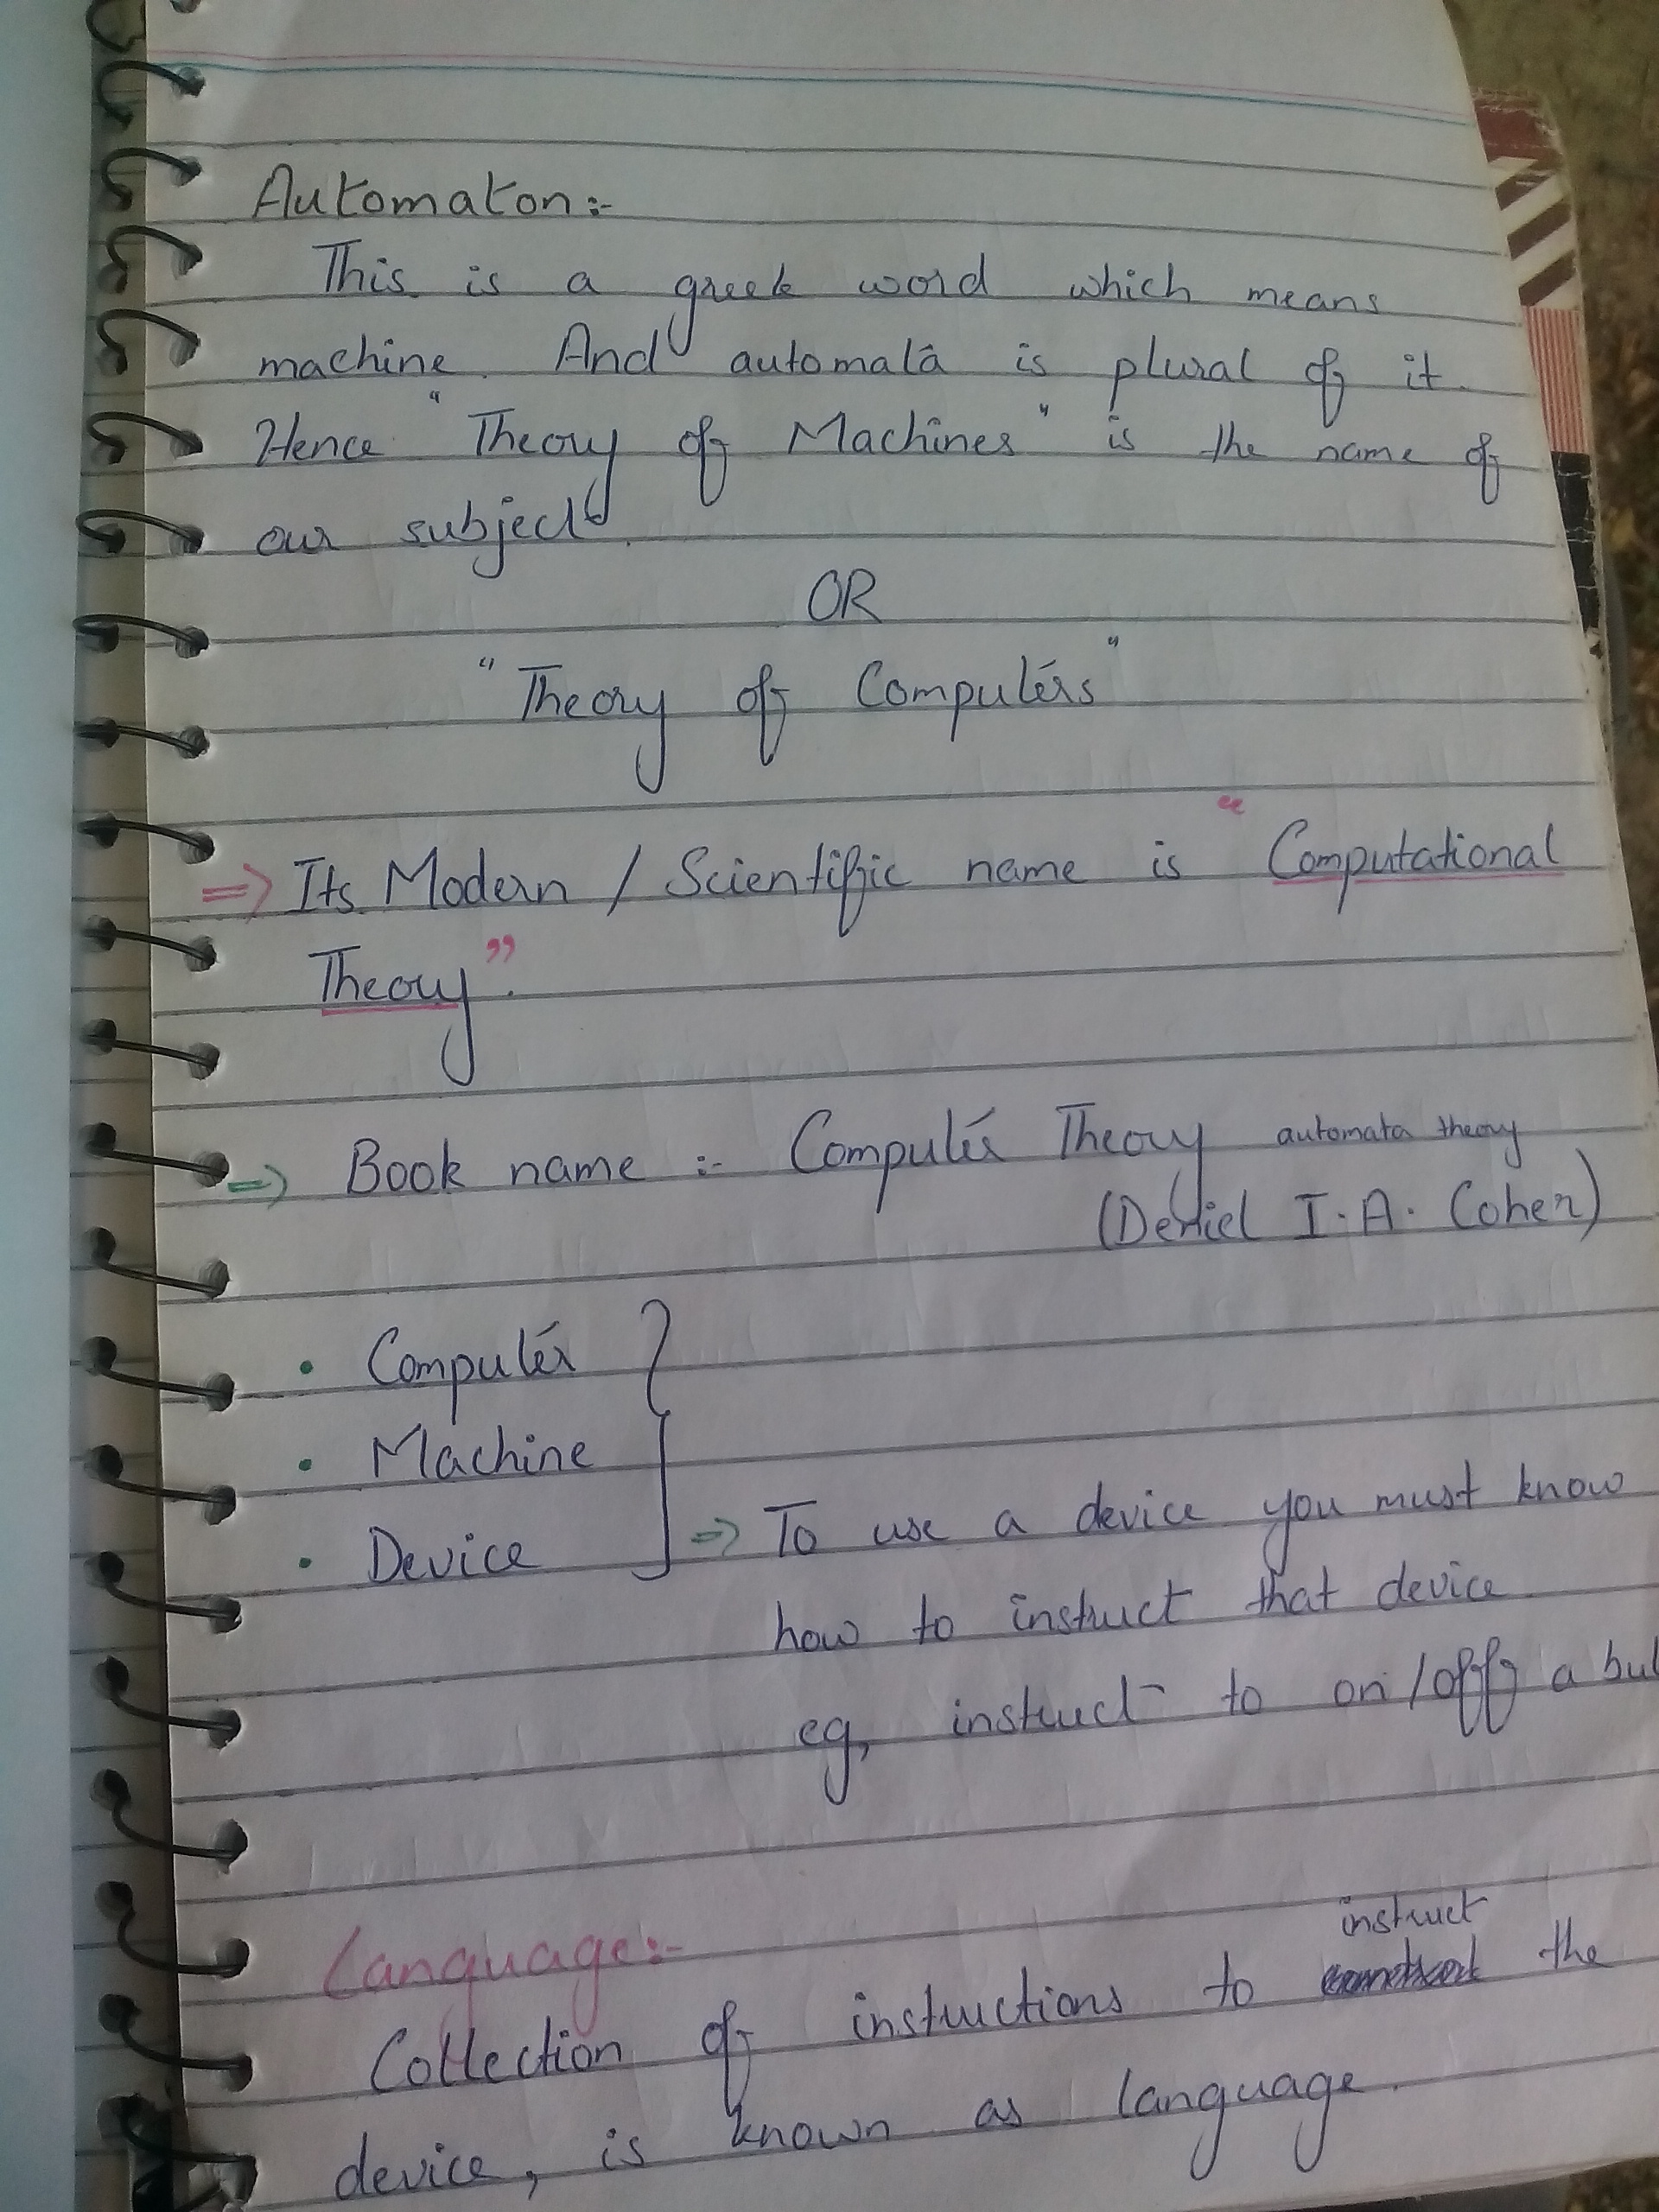 Automaton:-
This is a greek word which means
machine. And automata is plural of it.
Hence "Theory of Machines" is the name of
our subject.
OR
"Theory of Computers"
=> Its Modern / Scientific name is "Computational
Theory".
=> Book name :- Computer Theory automata theory
(Deniel I. A. Cohen)
• Computer
• Machine
• Device => To use a device you must know
how to instruct that device
eg, instruct to on/off a bul
Language:-
instruct
Collection of instructions to the
device, is known as language.